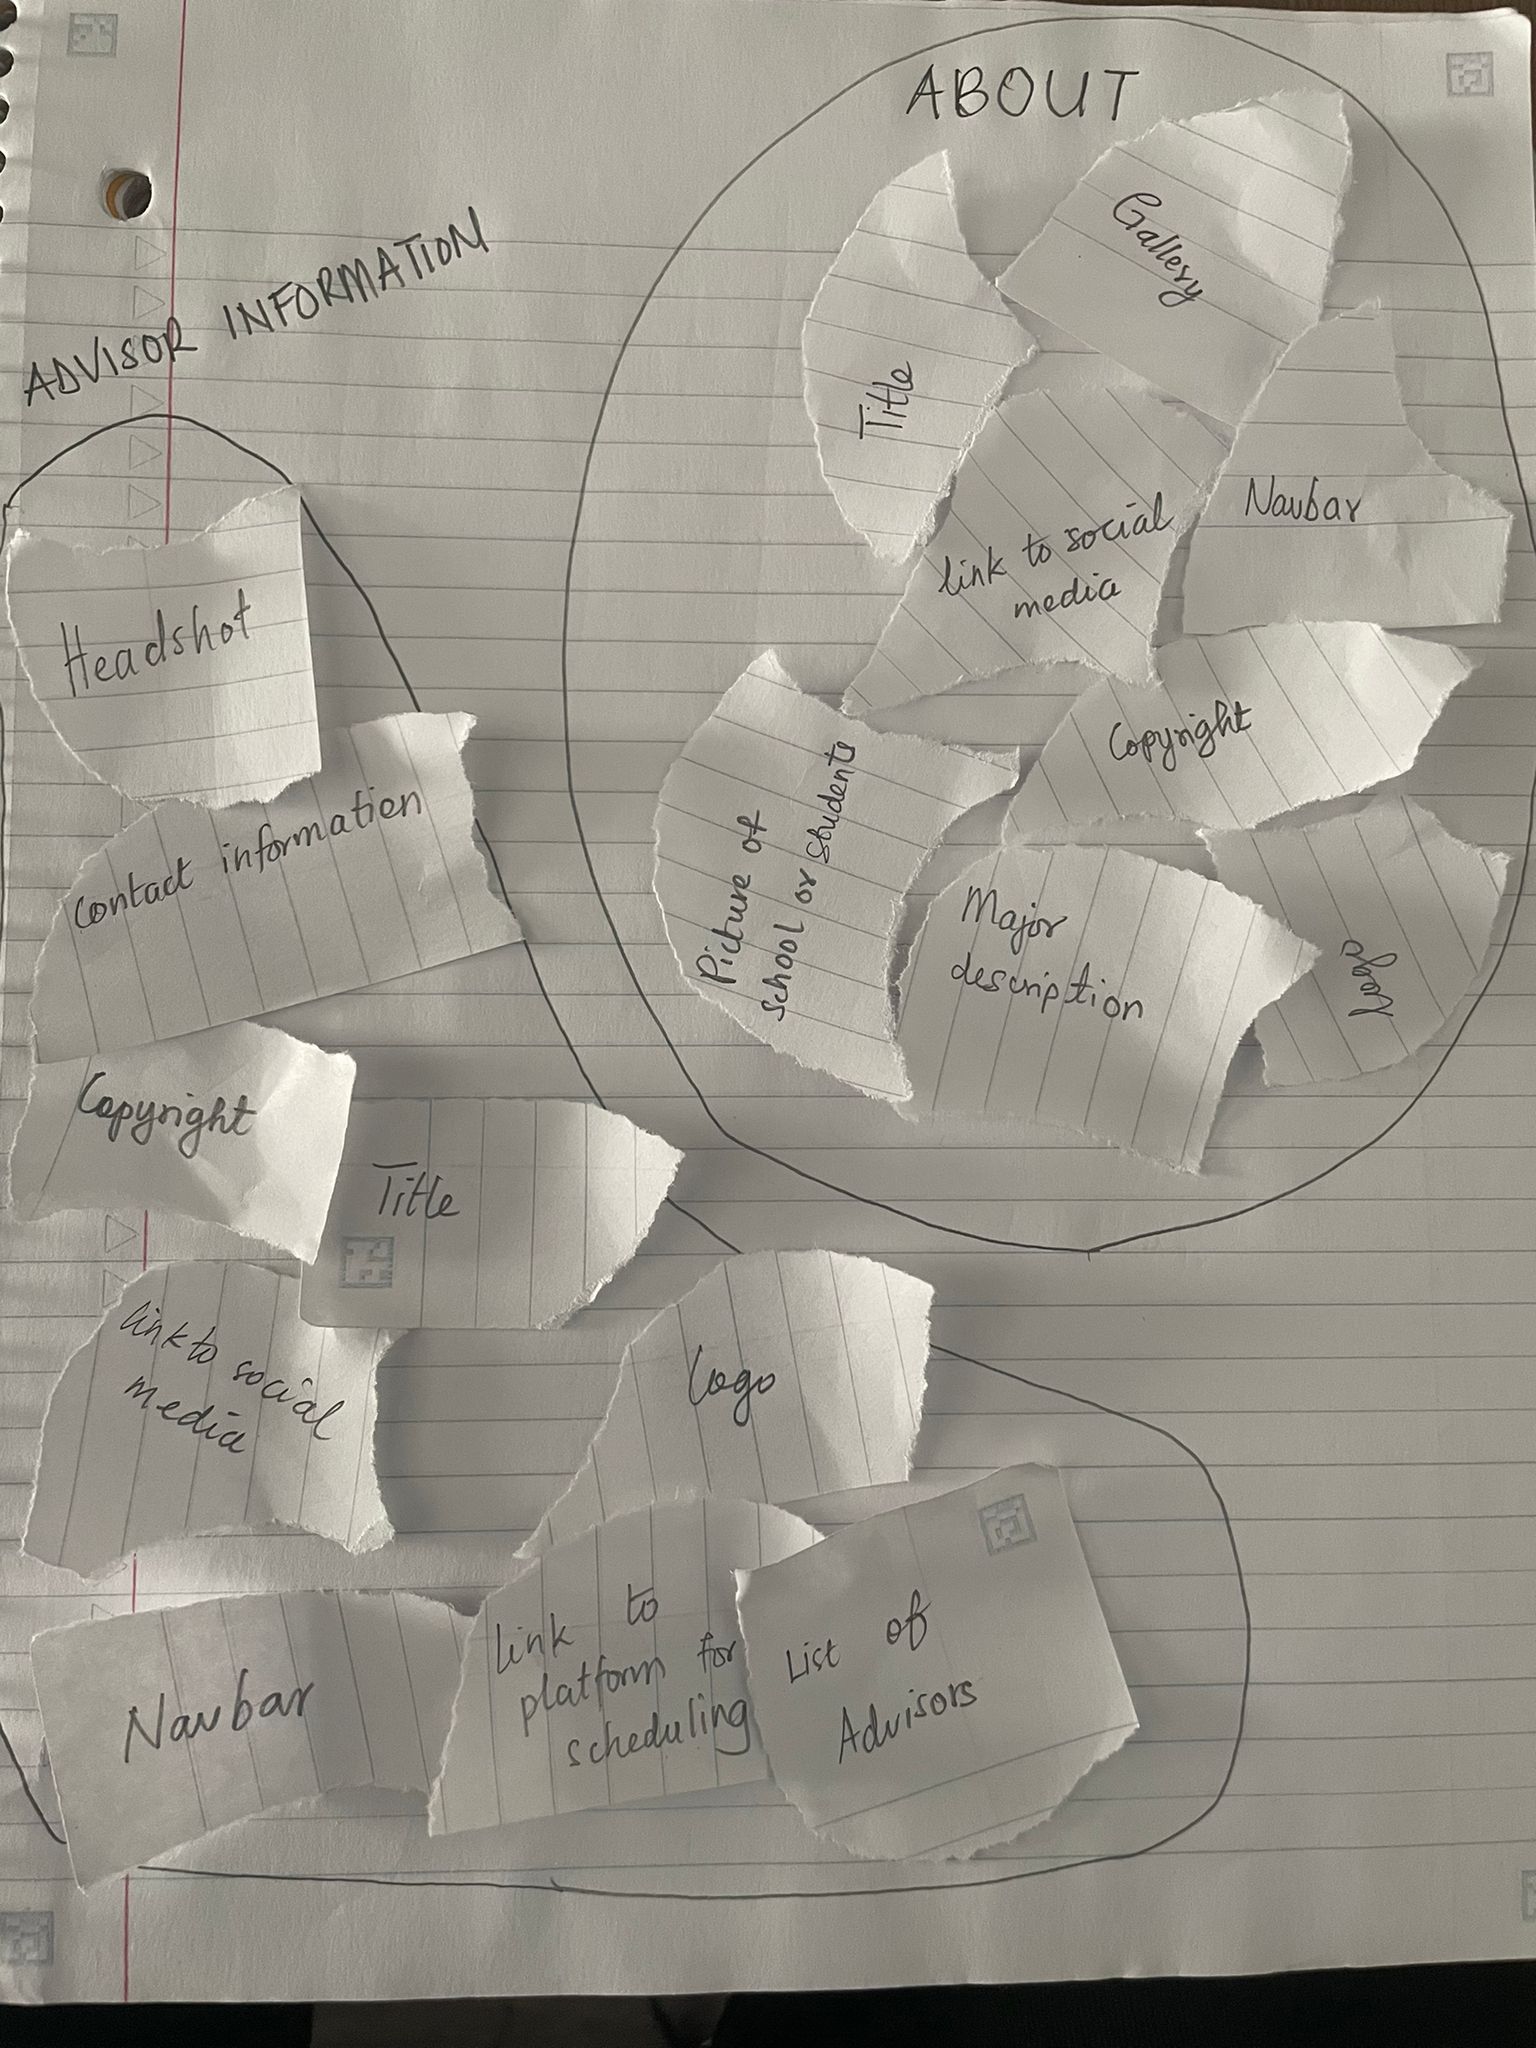 ABOUT
Gallery
Title
Navbar
link to social
media
Copyright
Picture of
school or students
Major
description
Logo
ADVISOR INFORMATION
Headshot
Contact information
Copyright
Title
link to social
media
Logo
Navbar
Link to
platform for
scheduling
List of
Advisors